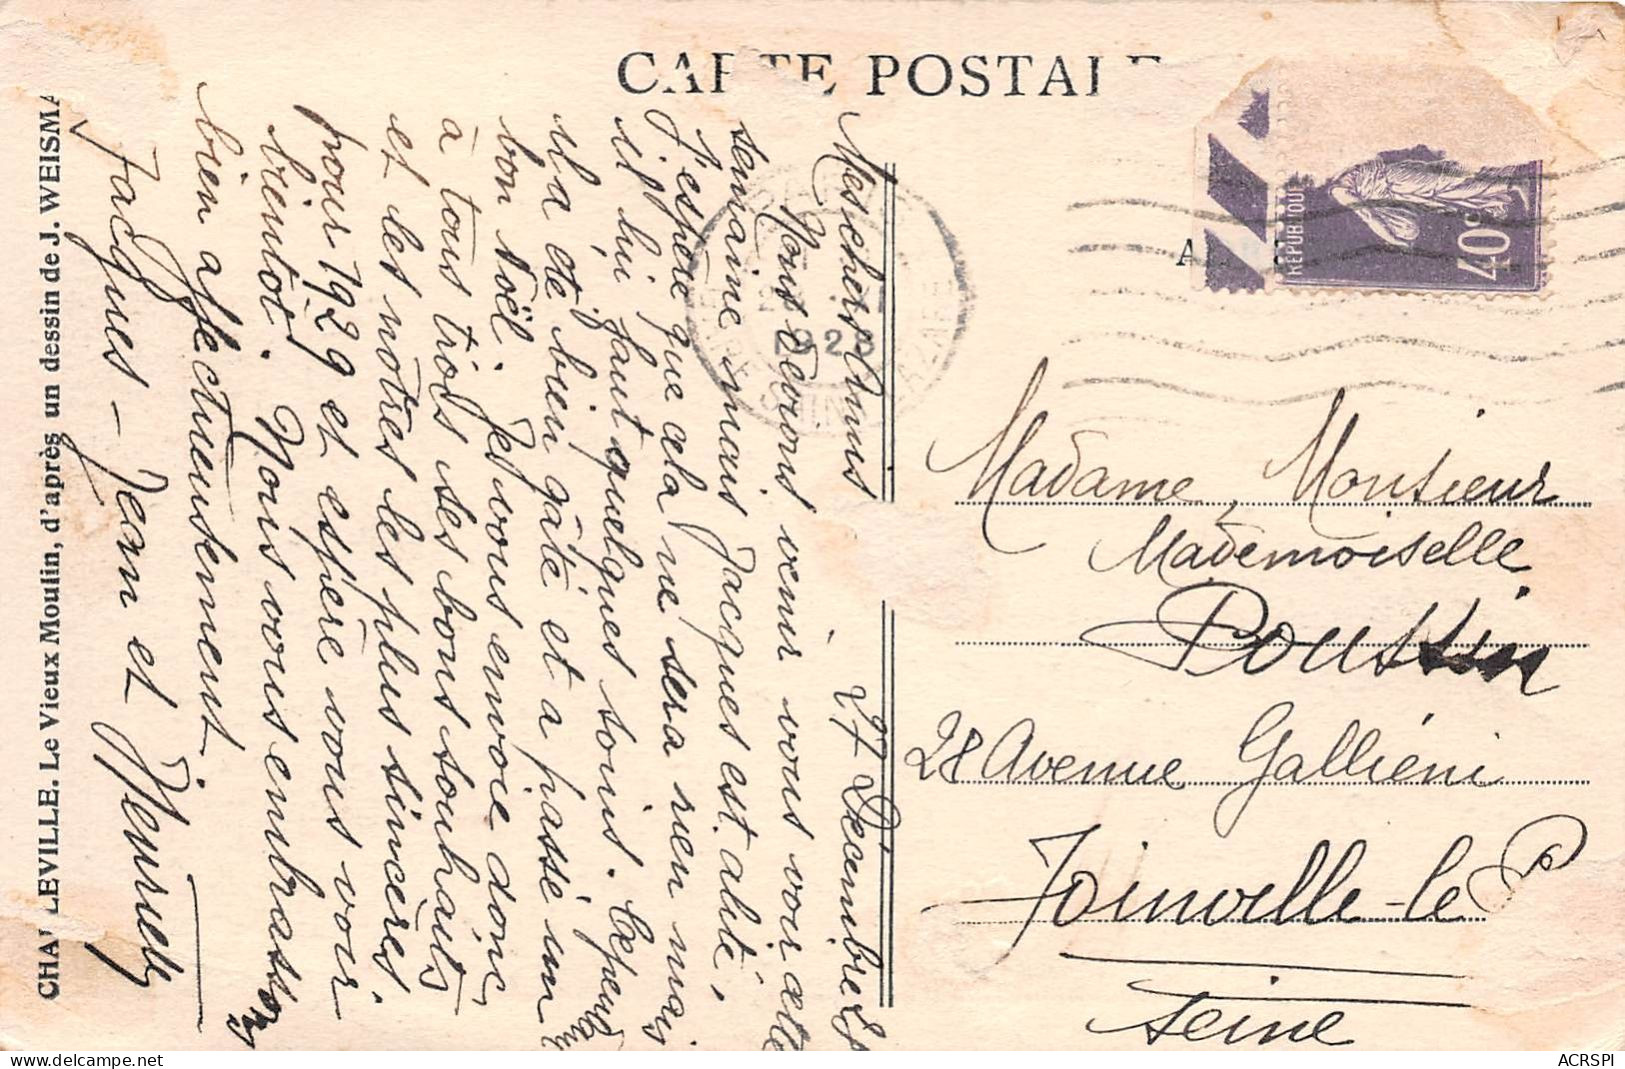 CARTE POSTALE
CHARLEVILLE. Le Vieux Moulin, d'après un dessin de J. WEISMA
27 Décembre 28
Mes chers Amis
Nous devons venir vous voir cette
semaine mais Jacques est alité,
J'espère que cela ne sera rien mais
il lui faut quelques soins. Cependant
il a été bien gâté et a passé un
bon Noël. Je vous envoie donc,
à tous trois ses bons souhaits
et les nôtres les plus sincères
pour 1929 et espère vous voir
bientôt. Nous vous embrassons
bien affectueusement
Jacques - Jean et
REPUBLIQUE
40c
1928
Madame, Monsieur
Mademoiselle
Poussin
28 Avenue Galliéni
Joinville-le P
Seine
ACRSPI